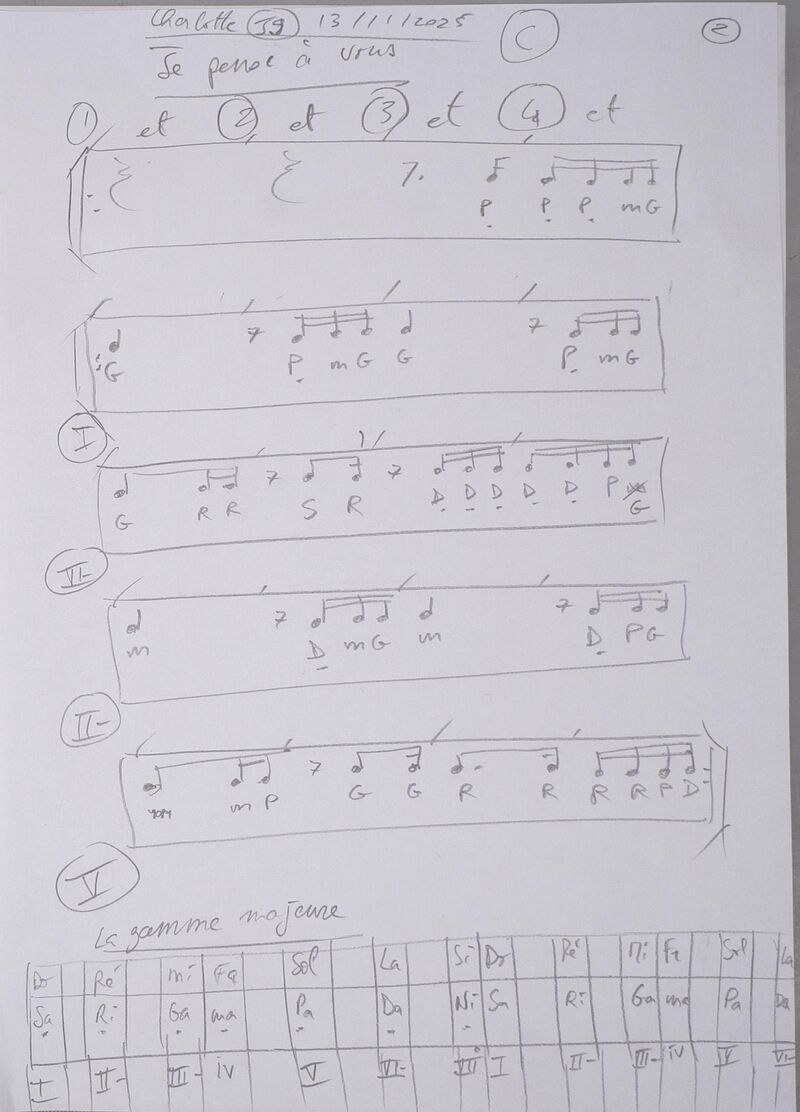 Charlotte 39 13/11/2025 C 2
Je pense à vous
1 et 2 et 3 et 4 et
P P P m G
G P m G G P m G
I
G R R S R D D D D D P G
VI-
m D m G m D P G
II-
m P G G R R R R P D
V
La gamme majeure
Do Ré mi Fa Sol La Si Do Ré Mi Fa Sol La
Sa Ri Ga ma Pa Da Ni Sa Ri Ga ma Pa Da
I II- III- iv V VI- VII° I II- III- iv V VI-